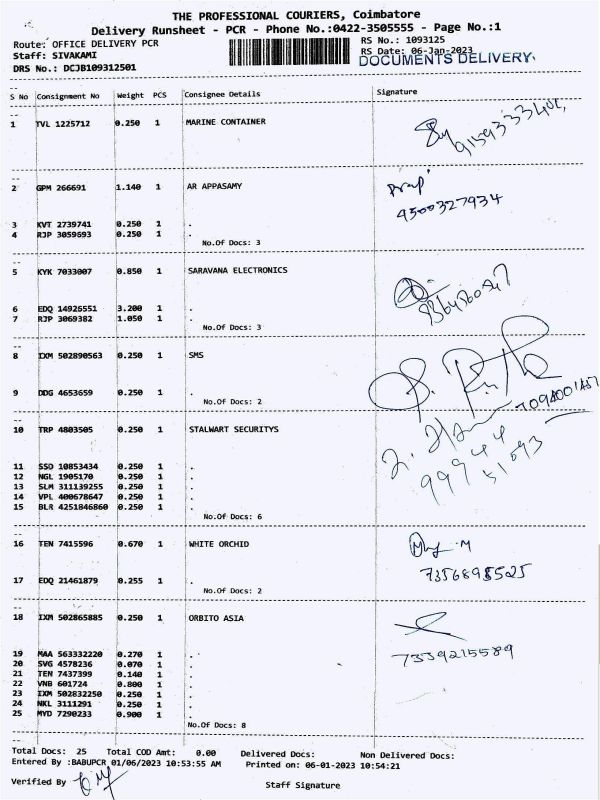 THE PROFESSIONAL COURIERS, Coimbatore
Delivery Runsheet - PCR - Phone No.:0422-3505555 - Page No.:1
Route: OFFICE DELIVERY PCR
RS No.: 1093125
Staff: SIVAKAMI
RS Date: 06-Jan-2023
DRS No.: DCJB109312501
DOCUMENTS DELIVERY.
S No Consignment No Weight PCS Consignee Details Signature
1 TVL 1225712 0.250 1 MARINE CONTAINER
2 GPM 266691 1.140 1 AR APPASAMY
9500327934
3 KVT 2739741 0.250 1 .
4 RJP 3059693 0.250 1 .
No.Of Docs: 3
5 KYK 7033007 0.850 1 SARAVANA ELECTRONICS
6 EDQ 14926551 3.200 1 .
7 RJP 3069382 1.050 1 .
No.Of Docs: 3
8 IXM 502890563 0.250 1 SMS
9 DDG 4653659 0.250 1 .
No.Of Docs: 2
10 TRP 4803505 0.250 1 STALWART SECURITYS
99944
51093
11 SSD 10853434 0.250 1 .
12 NGL 1905170 0.250 1 .
13 SLM 311139255 0.250 1 .
14 VPL 400678647 0.250 1 .
15 BLR 4251846860 0.250 1 .
No.Of Docs: 6
16 TEN 7415596 0.670 1 WHITE ORCHID
7356898525
17 EDQ 21461879 0.255 1 .
No.Of Docs: 2
18 IXM 502865885 0.250 1 ORBITO ASIA
7339215589
19 MAA 563332220 0.270 1 .
20 SVG 4578236 0.070 1 .
21 TEN 7437399 0.140 1 .
22 VNB 601724 0.800 1 .
23 IXM 502832250 0.250 1 .
24 NKL 3111291 0.250 1 .
25 MYD 7290233 0.900 1 .
No.Of Docs: 8
Total Docs: 25 Total COD Amt: 0.00 Delivered Docs: Non Delivered Docs:
Entered By :BABUPCR 01/06/2023 10:53:55 AM Printed on: 06-01-2023 10:54:21
Verified By
Staff Signature